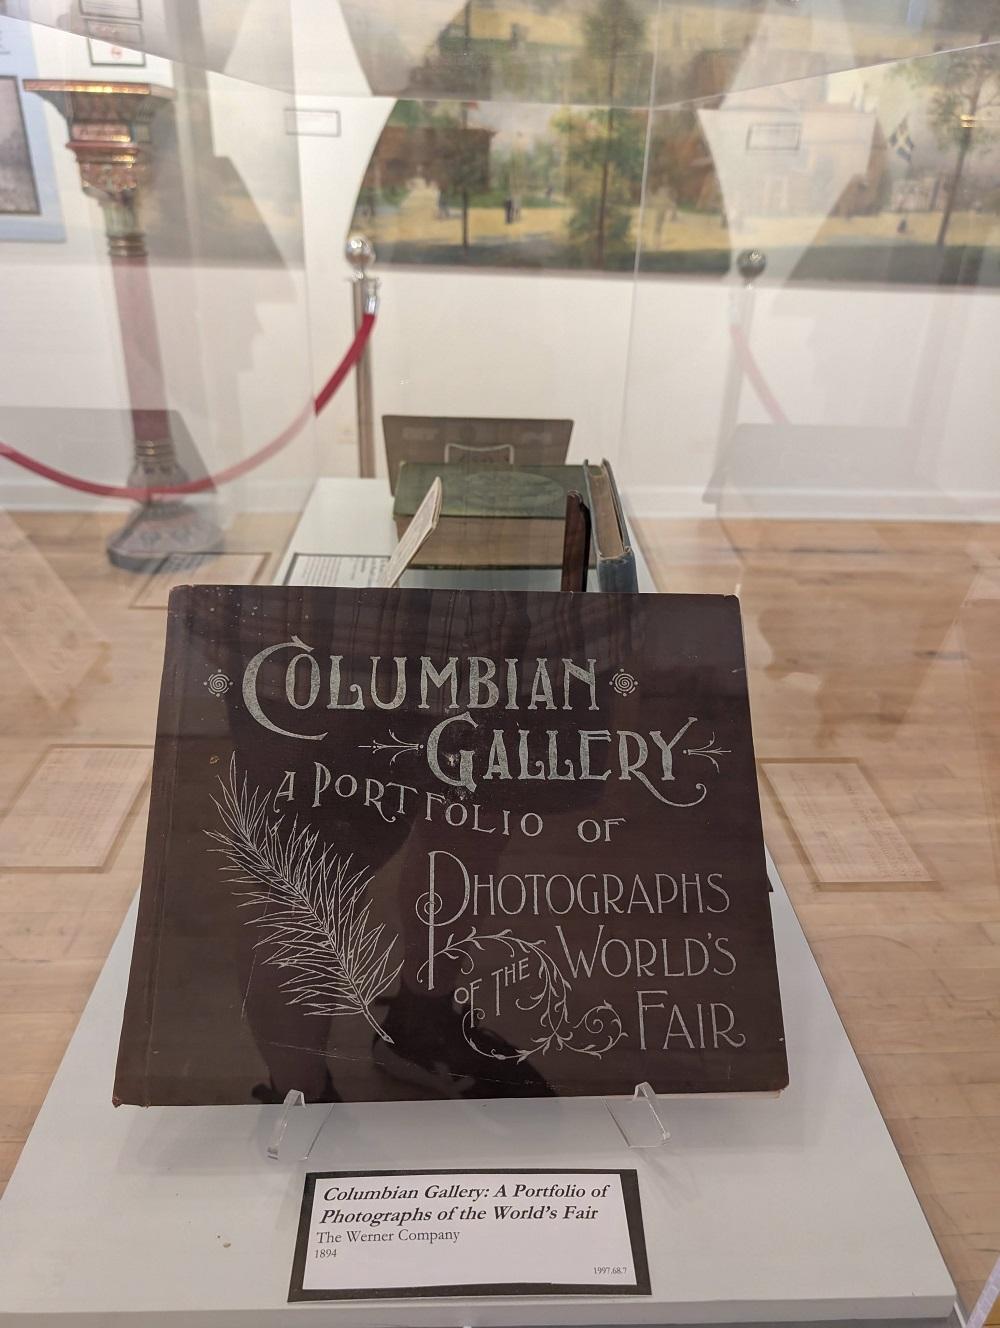 COLUMBIAN
GALLERY
A PORTFOLIO OF
PHOTOGRAPHS
OF THE WORLD'S
FAIR
Columbian Gallery: A Portfolio of
Photographs of the World's Fair
The Werner Company
1894
1997.68.7